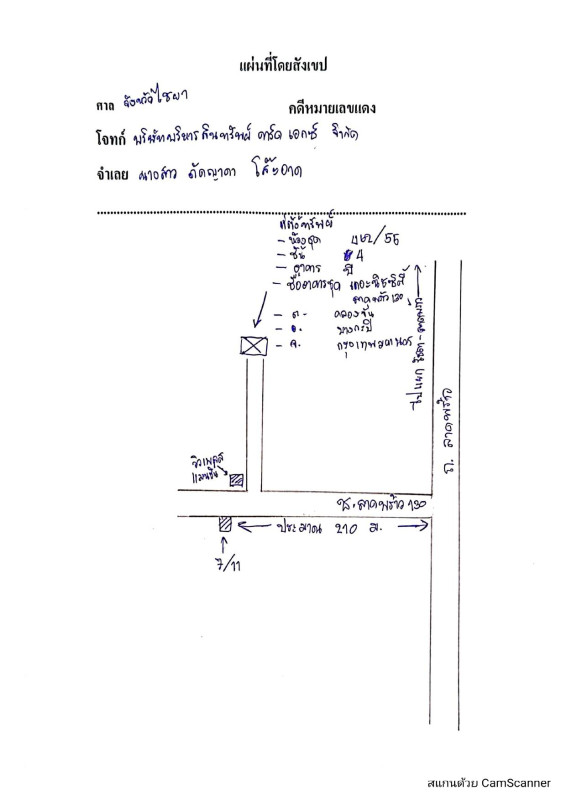 แผ่นที่โดยสังเขป
ศาล จังหวัดไชยา
คดีหมายเลขแดง
โจทก์ บริษัทบริหารสินทรัพย์ คาร์ด เอกซ์ จำกัด
จำเลย นางสาว
ที่ตั้งทรัพย์
- ห้องชุด /55
- ชั้น 4
- อาคาร บี
- ชื่ออาคารชุด เดอะนิชซิตี้
ลาดพร้าว 130
- ต. คลองจั่น
- อ. บางกะปิ
- จ. กรุงเทพมหานคร
ถ. ลาดพร้าว
แมนชั่น
ซ. ลาดพร้าว 130
ประมาณ 210 ม.
7/11
สแกนด้วย CamScanner